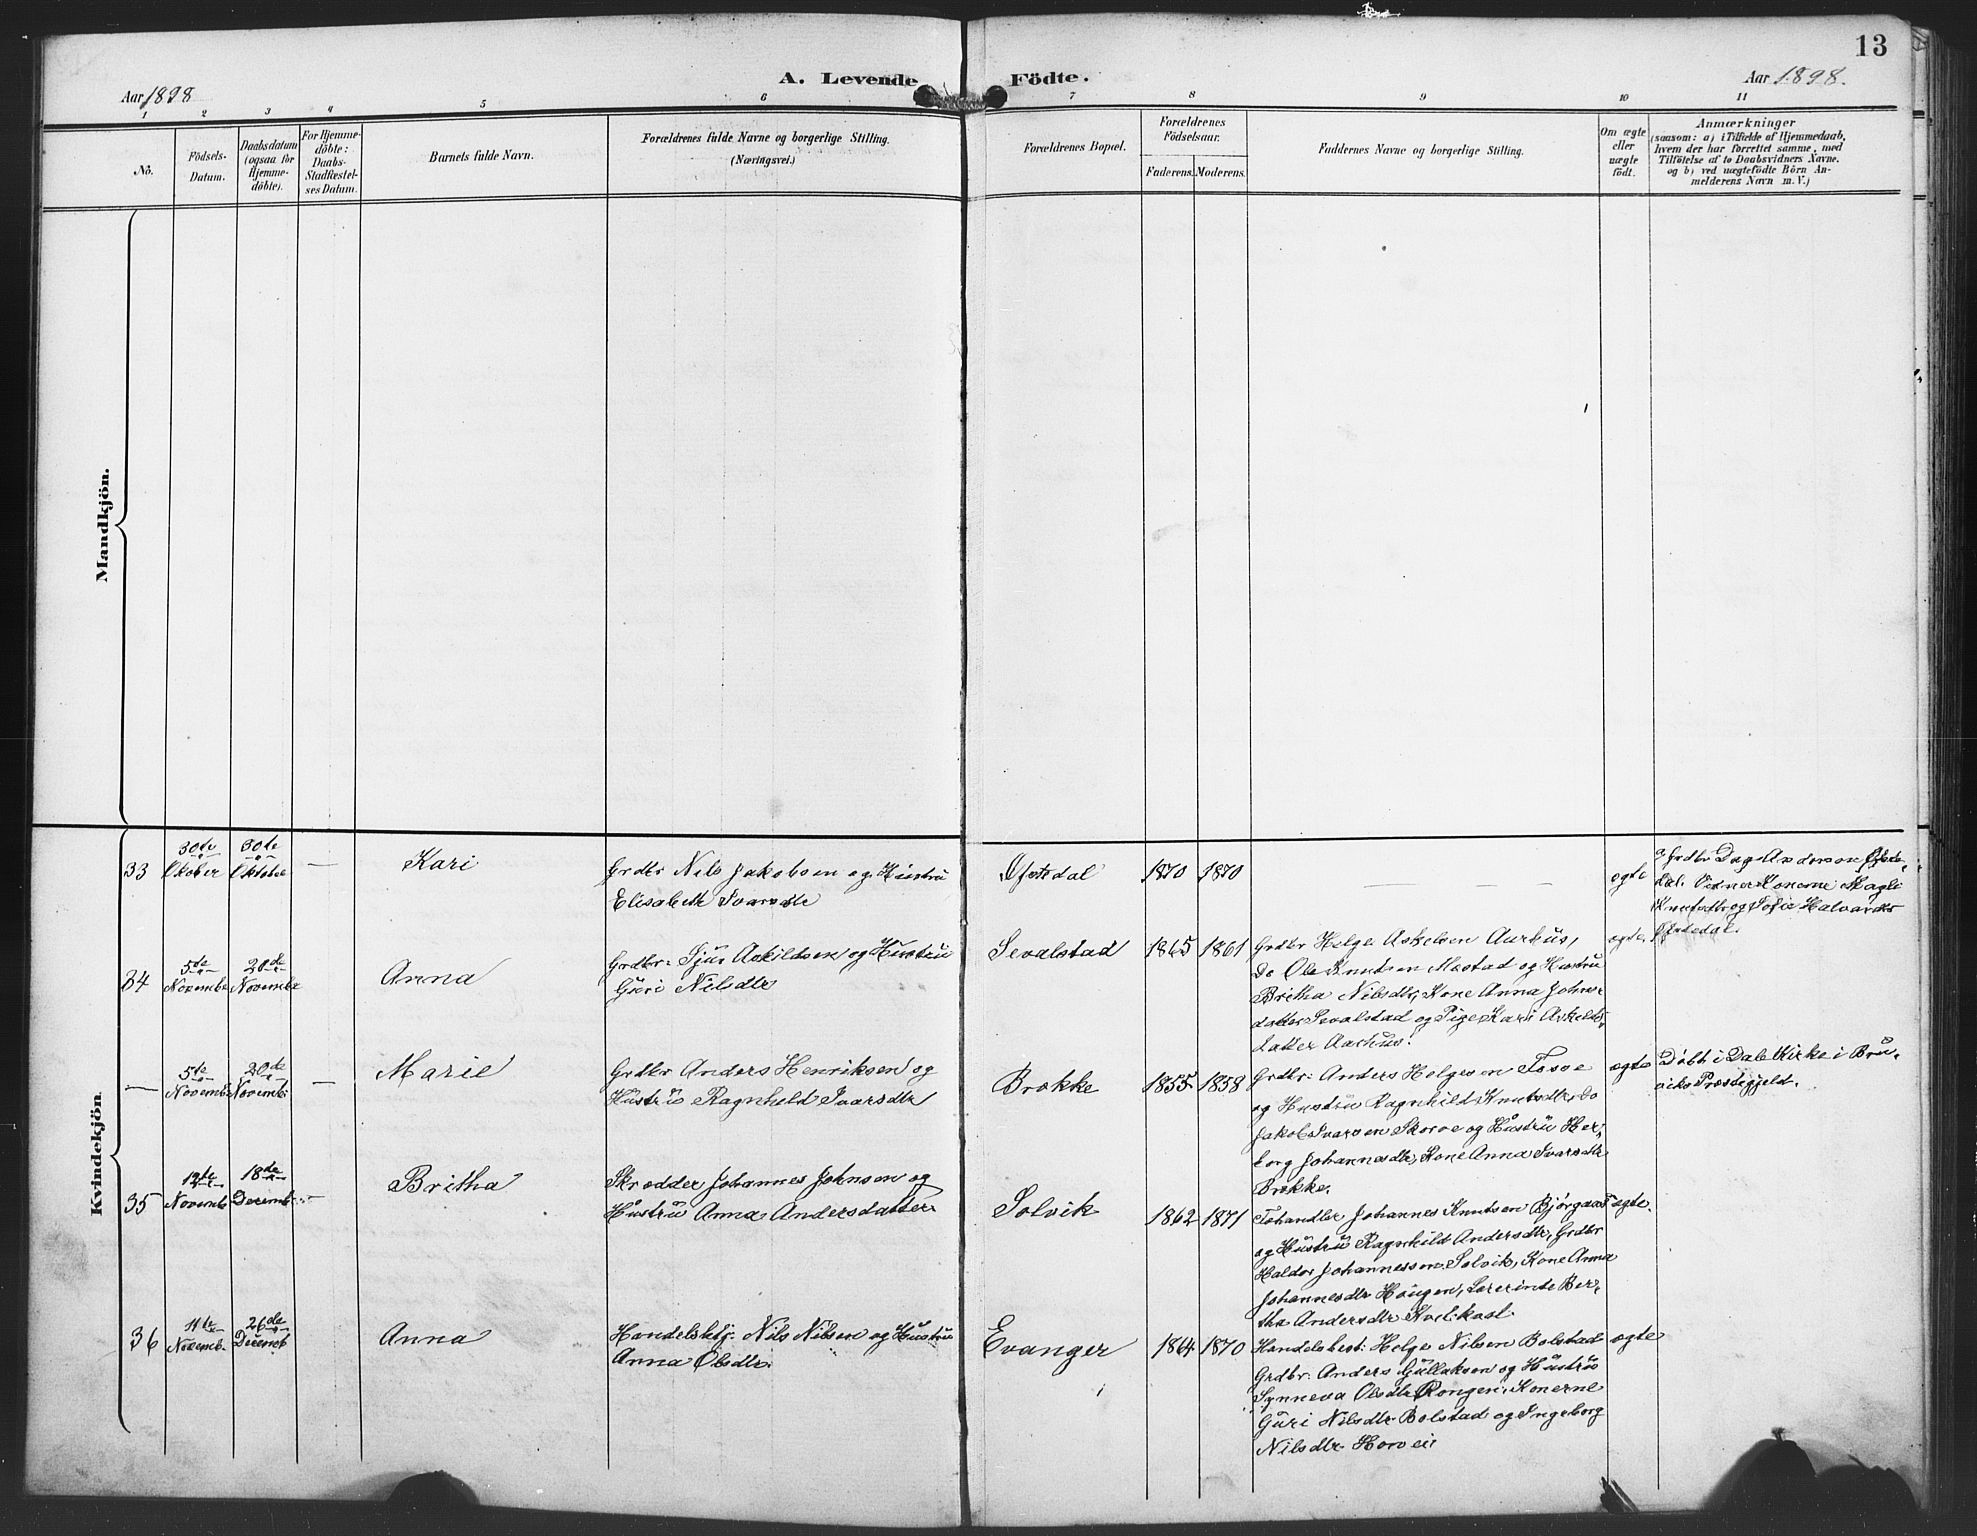 13
A. Levende Födte.
Aar 1898
Aar 1898.
1 2 3 4 5 6 7 8 9 10 11
No.
Födsels-
Datum.
Daabsdatum
(ogsaa for
Hjemme-
döbte).
For Hjemme-
döbte:
Daabs-
Stadfæstel-
ses Datum.
Barnets fulde Navn.
Forældrenes fulde Navne og borgerlige Stilling.
(Næringsvei.)
Forældrenes Bopæl.
Forældrenes
Födselsaar.
Faderens. Moderens.
Faddernes Navne og borgerlige Stilling.
Om ægte
eller
uægte
födt.
Anmærkninger
(saasom: a) i Tilfælde af Hjemmedaab,
hvem der har forrettet samme, med
Tilföielse af to Daabsvidners Navne.
og b) ved uægtefödte Börn An-
melderens Navn m. V.)
Mandkjön.
Kvindekjön.
33
30te
Oktober
30te
Oktober
—
Kari
Grdbr Nils Jakobsen og Hustru
Elisabeth Ivarsdtr
Øfstedal
1870 1870
— — —
ægte
Grdbr Dag Anderson Øfste-
dal. Vidner Konerne Magli
Knutsdtr og Sofie Halvards
Øfstedal.
34
5te
Novembr
20de
Novembr
Anna
Grdbr. Sjur Askildsen og Hustru
Guri Nilsdtr
Sevalstad
1865 1861
Grdbr Helge Askelsen Aarhus,
Do Ole Knutsen Mestad og Hustru
Britha Nilsdtr, Kone Anna Johns-
datter Sevalstad og Pige Kari Askelds-
datter Aarhus.
ægte.
—
5te
Novemb.
20de
Novemb.
—
Marie
Grdbr Anders Henriksen og
Hustru Ragnhild Ivarsdtr
Brække
1855 1858
Grdbr. Anders Helgesen Fosse
og Hustru Ragnhild Knutsdtr, do
Jakob Ivarsen Skorve og Hustru Her-
borg Johannesdtr, Kone Anna Ivarsdtr
Brække.
ægte
Døbt i Dale Kirke i Bru-
viks Præstegjeld.
35
12te
Novemb
18de
Decemb.
—
Britha
Skrædder Johannes Johnsen og
Hustru Anna Andersdatter
Solvik
1862 1871
Johannes Knutsen Bjørgaas
og Hustru Ragnhild Andersdtr, Grdbr
Haldor Johannessen Solvik, Kone Anna
Johannesdtr Haugen, Lærerinde Ber-
tha Andersdtr Kvilekval
ægte.
36
11te
Novemb.
26de
Decemb
Anna
Handelsbtj. Nils Nilsen og Hustru
Anna Olsdtr.
Evanger
1864 1870
Handelsbest. Helge Nilsen Bolstad
Grdbr. Anders Gullaksen og Hustru
Synneva Olsdtr Rongen, Konerne
Guri Nilsdtr Bolstad og Ingeborg
Nilsdtr Horvei
ægte